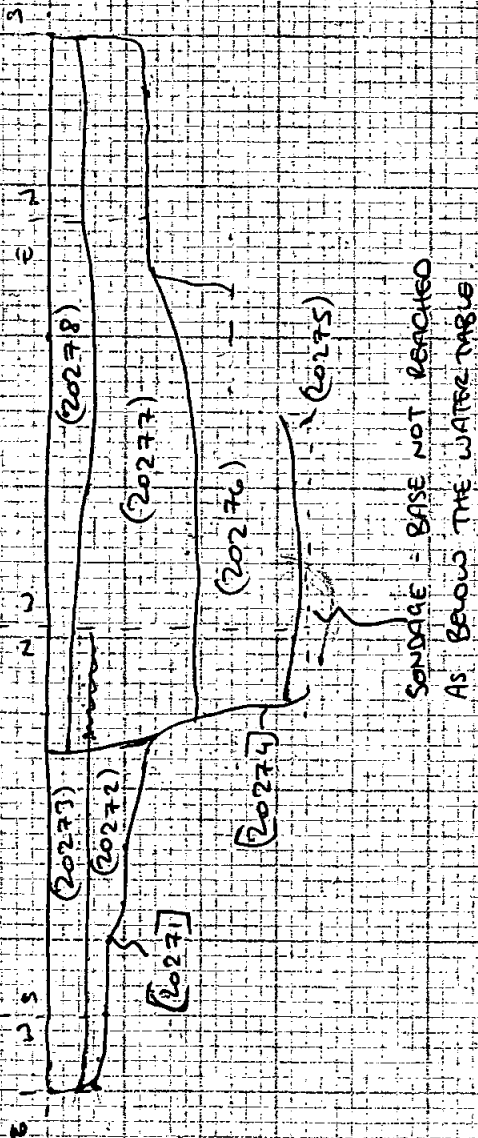 (20278)
(20277)
(20273)
(20272)
(20276)
(20275)
[20274]
[20271]
SONDAGE - BASE NOT REACHED
AS BELOW THE WATER TABLE.